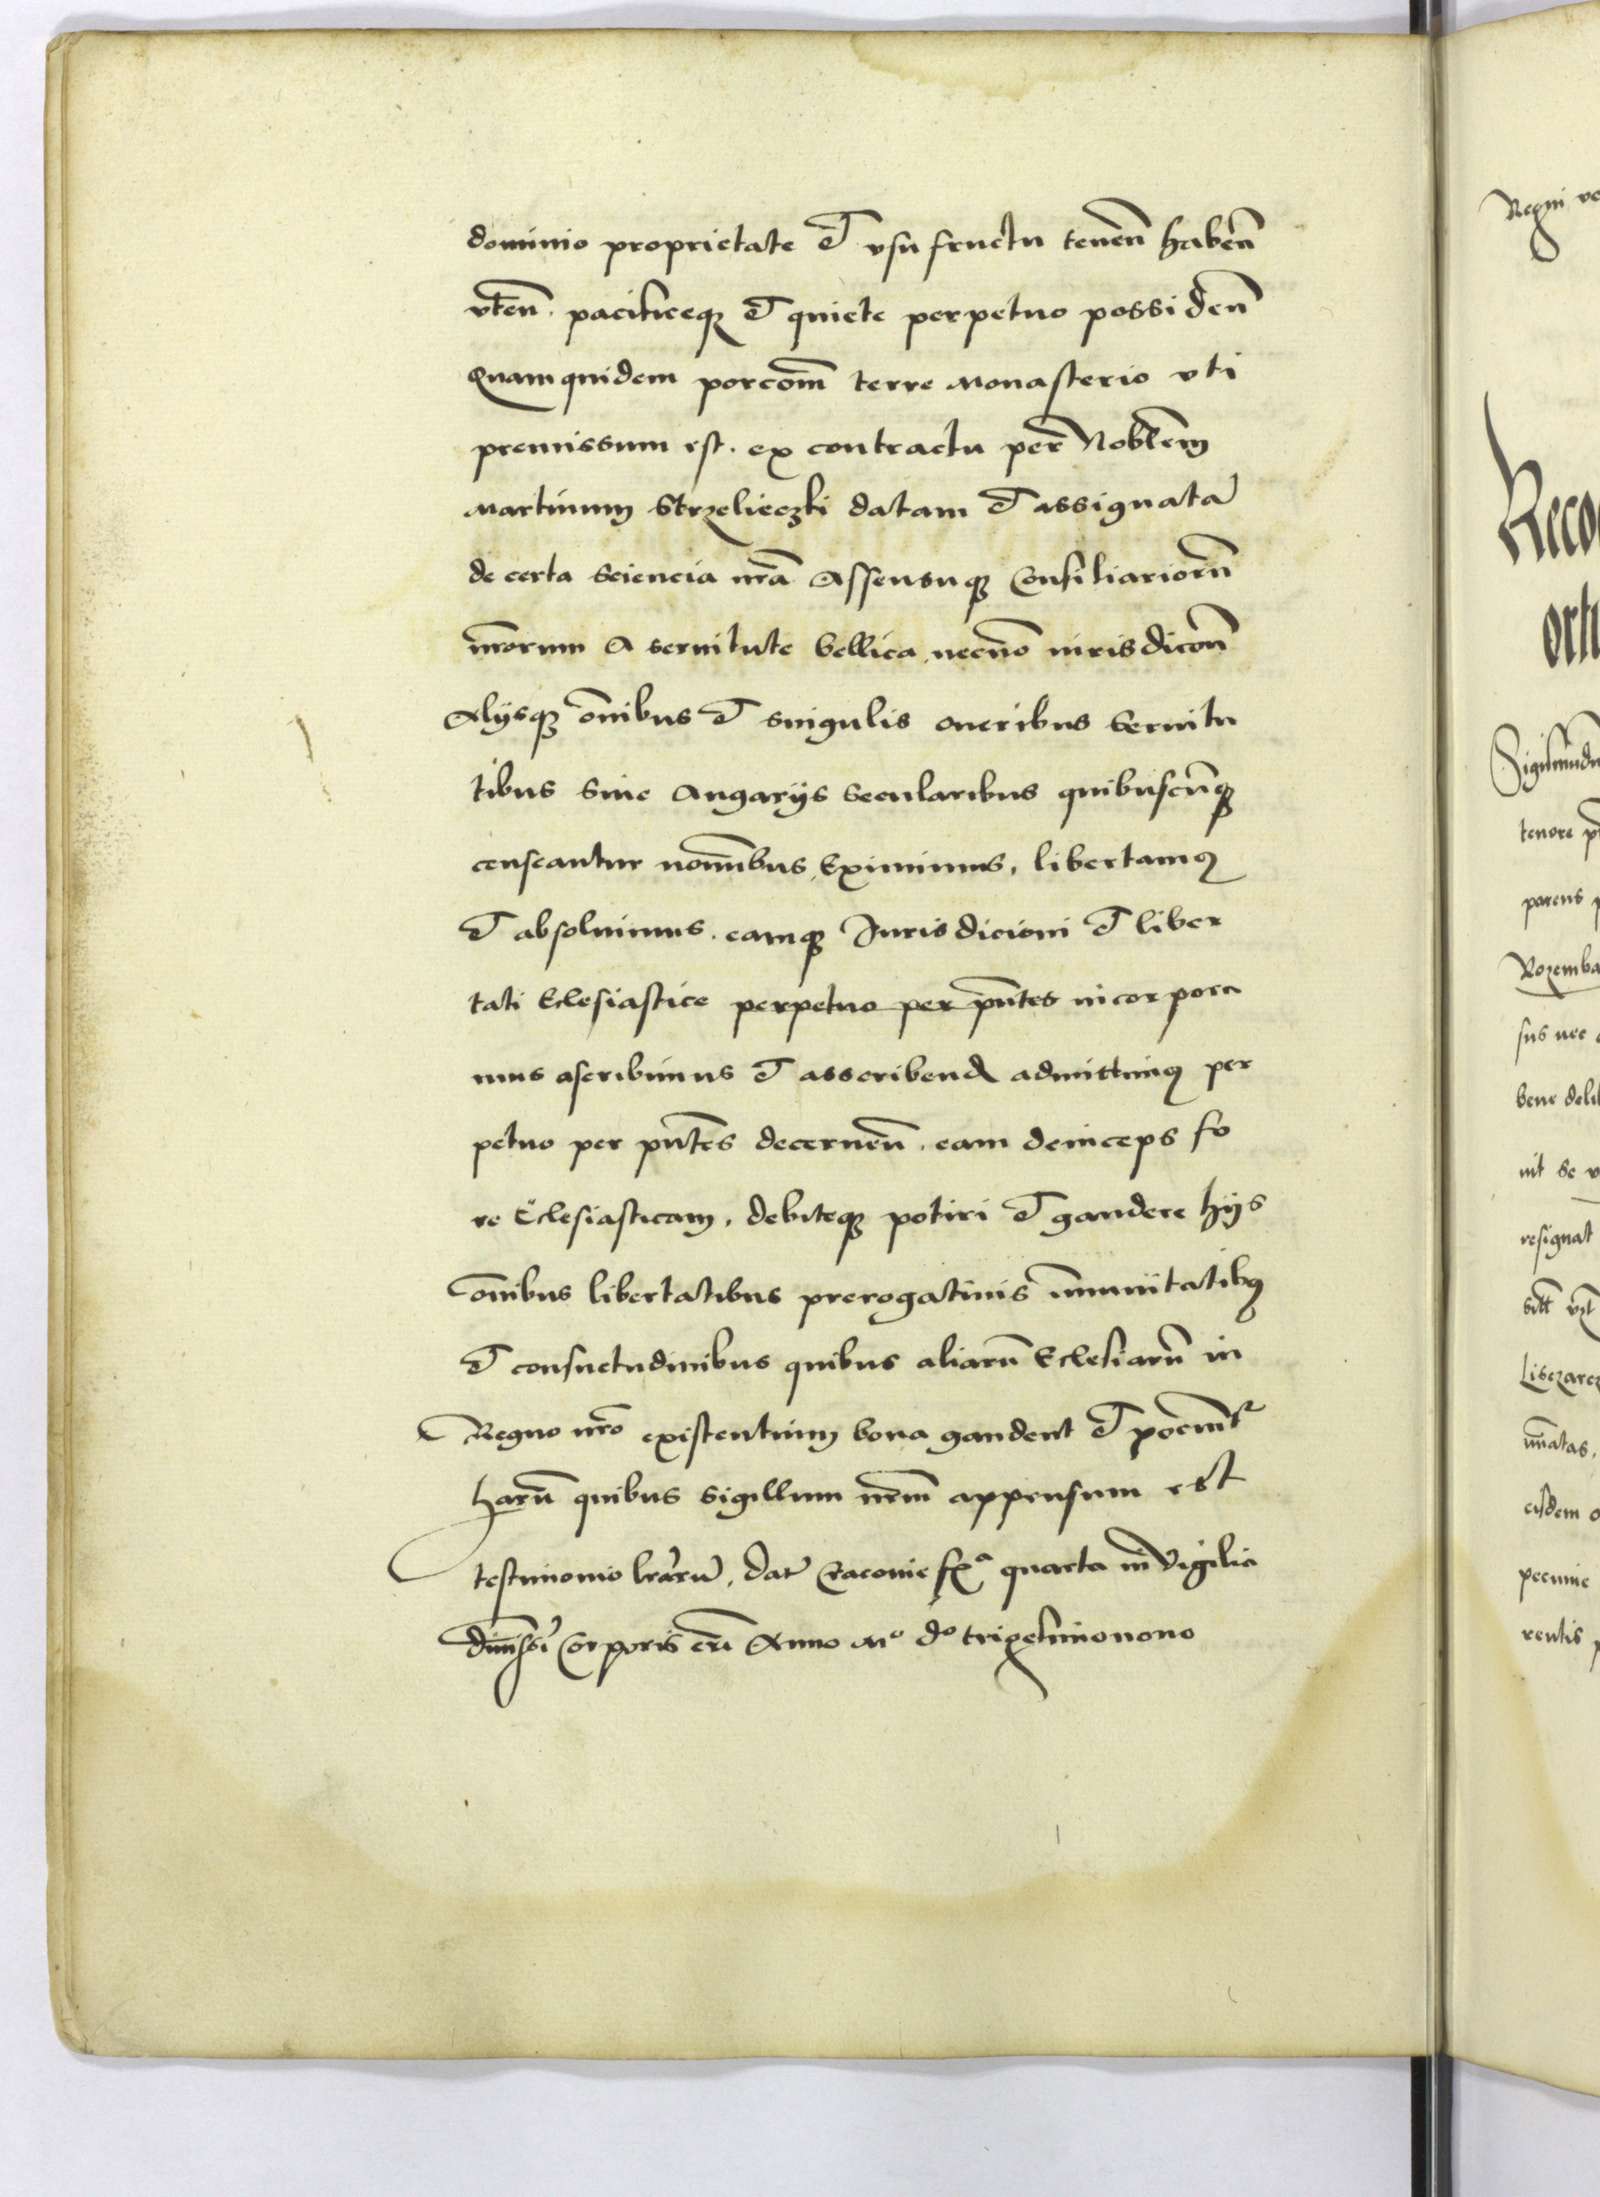 dominio proprietate et vsufructu tenen̄ haben̄
vten̄. pacificeq̨ et quiete perpetuo possiden̄
Quamquidem porcōm̄ terre Monasterio vti
premissum est. ex contractu per Nobl̄em
Martinum Strzelieczki datam et assignatā
de certa sciencia nr̄a Assensuq̨ Consiliariorū
nr̄orum A seruitute bellica, necno͞n iurisdicōn̄
Alijsq̨ om̄nibus et singulis oneribus seruitu
tibus siue Angarijs secularibus quibuscūnq̨
censeantur nom̄nibus, Eximimus, libertamꝰ
et absoluimus. eamq̨ Jurisdicioni et liber
tati Eclesiastice perpetuo per pn̄tes incorpora
mus ascribimus et asscribend̄ admittimꝰ per
petuo per pn̄tes decernen̄. eam deinceps fo
re Eclesiasticam, debiteq̨ potiri et gaudere hijs
om̄nibus libertatibus prerogatiuis im̄munitatibꝰ
et consuetudinibus quibus aliarū Eclesiarū in
Regno nr̄o existentium bona gaudent et pocīunt͛
harū quibus sigillum nr̄m appensum est
testimonio lr̄arū, Dat̄ Cracouie fr̄ª quarta in Vigilia
diuiniss̄i Corporis cr̄i Anno Mº dº trigesimonono
Regni
Reco
ortu
tenore
parens
Rozemba
sus nec
bene delib
uit se
resignat
Liszcarez
eisdem
pecunie
rentis